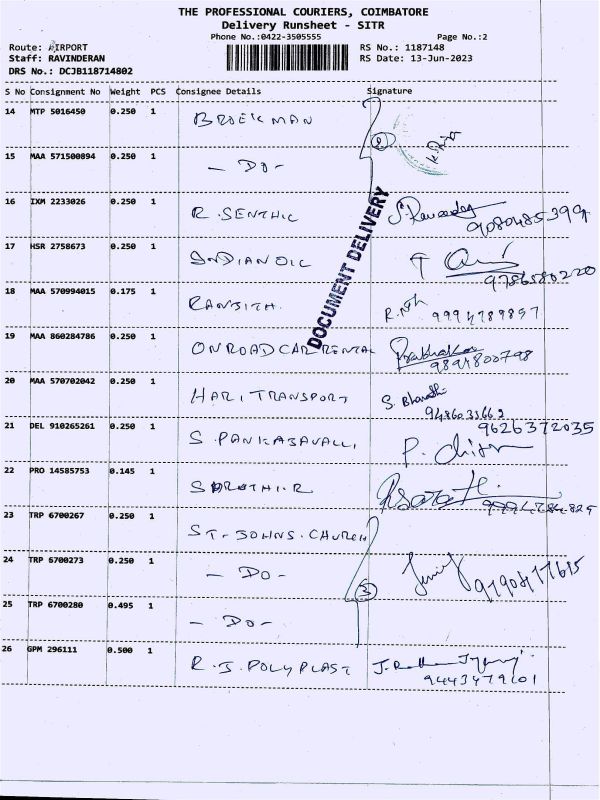 THE PROFESSIONAL COURIERS, COIMBATORE
Delivery Runsheet - SITR
Phone No.:0422-3505555 Page No.:2
Route: AIRPORT RS No.: 1187148
Staff: RAVINDERAN RS Date: 13-Jun-2023
DRS No.: DCJB118714802
S No Consignment No Weight PCS Consignee Details Signature
14 MTP 5016450 0.250 1 BROEKMAN
15 MAA 571500894 0.250 1 - DO -
16 IXM 2233026 0.250 1 R. SENTHIL 9080485399
17 HSR 2758673 0.250 1 INDIAN OIL 9786580220
18 MAA 570994015 0.175 1 RANJITH. 9994789897
19 MAA 860284786 0.250 1 ONROAD CAR RENTAL Prabhakar 9894800798
20 MAA 570702042 0.250 1 HARI TRANSPORT S. Bharathi 9486033662
21 DEL 910265261 0.250 1 S. PANKAJAVALLI 9626372035
22 PRO 14585753 0.145 1 SARATHI. R
23 TRP 6700267 0.250 1 ST- JOHNS. CHURCH
24 TRP 6700273 0.250 1 - DO -
25 TRP 6700280 0.495 1 - DO -
26 GPM 296111 0.500 1 R. J. POLYPLAST 9443479101
DOCUMENT DELIVERY